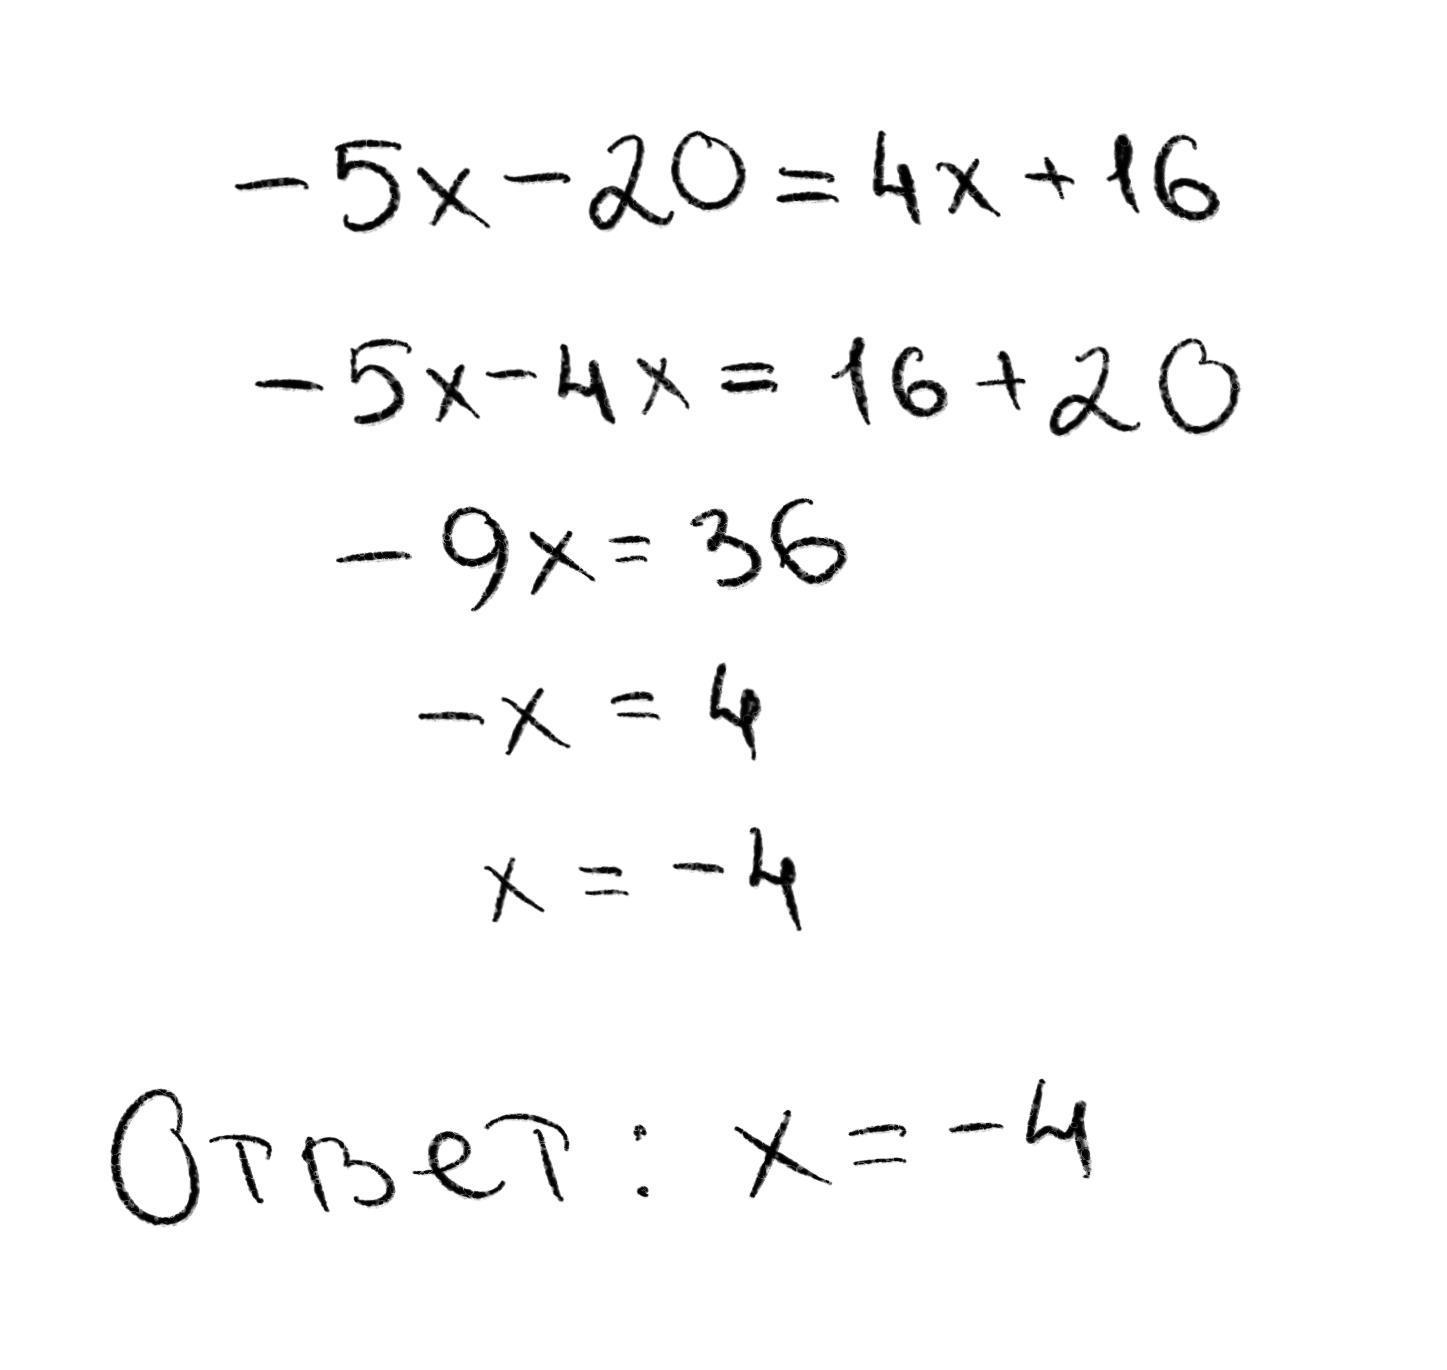 -5x-20=4x+16
-5x-4x=16+20
-9x=36
-x=4
x=-4
Ответ: x=-4